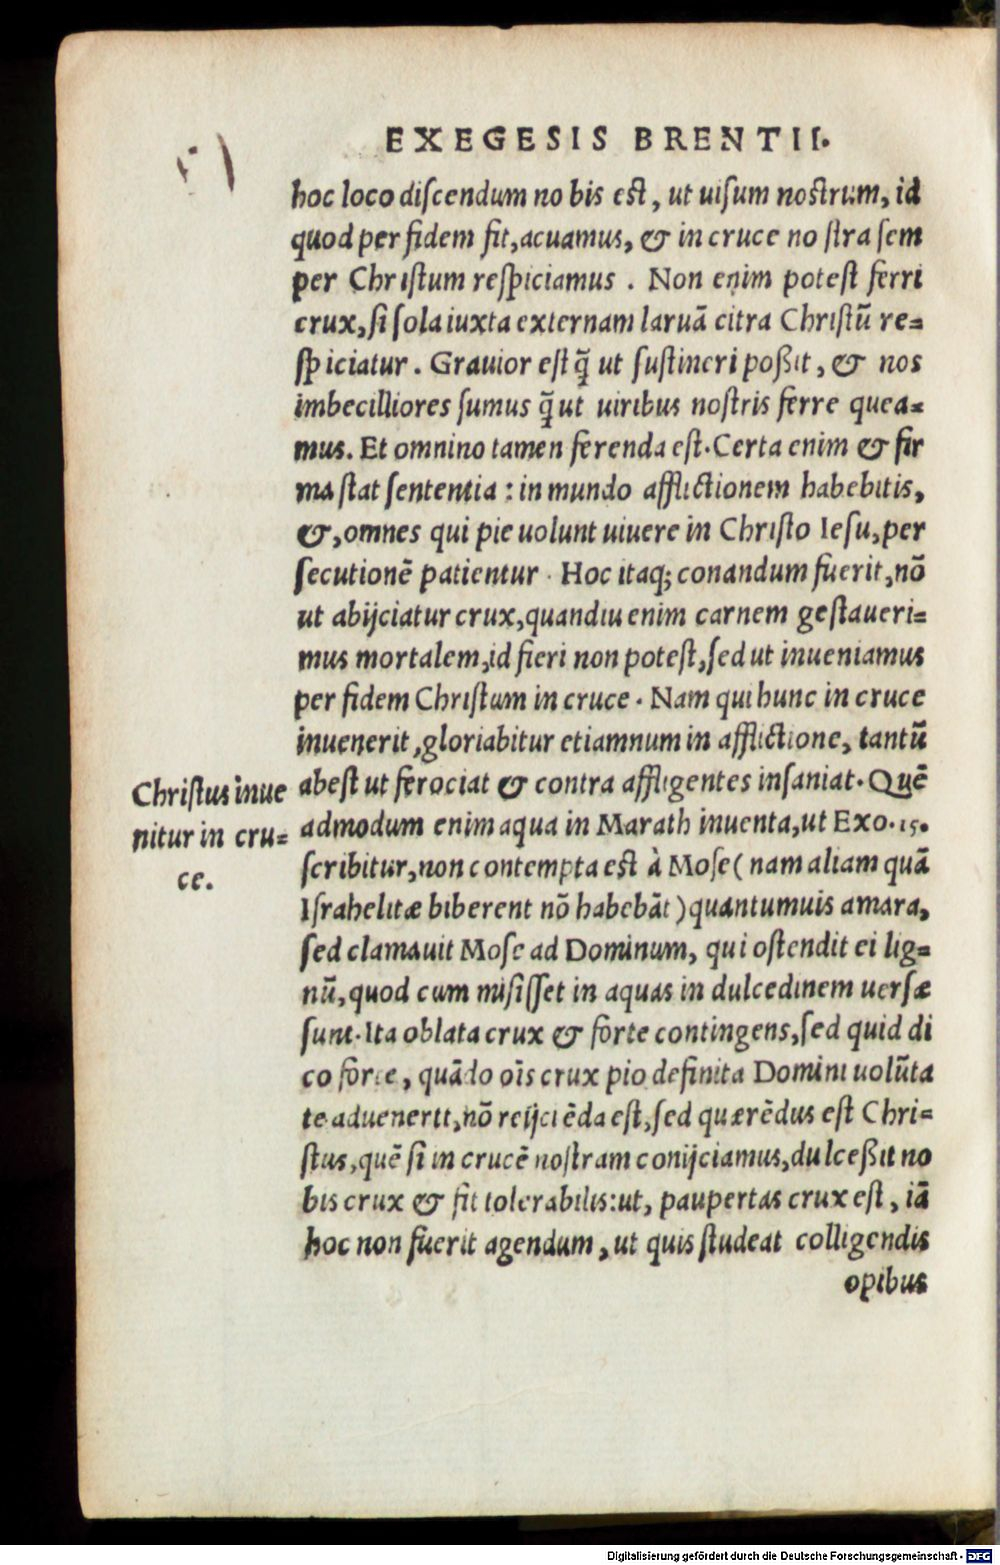 EXEGESIS BRENTII.
hoc loco discendum nobis est, ut uisum nostrum, id
quod per fidem fit, acuamus, & in cruce nostra sem
per Christum respiciamus. Non enim potest ferri
crux, si sola iuxta externam laruā citra Christū re=
spiciatur. Grauior est q̃ ut sustineri poßit, & nos
imbecilliores sumus q̃ ut uiribus nostris ferre quea=
mus. Et omnino tamen ferenda est. Certa enim & fir
ma stat sententia: in mundo afflictionem habebitis,
&, omnes qui pie uolunt uiuere in Christo Iesu, per
secutionē patientur. Hoc itaq; conandum fuerit, nō
ut abijciatur crux, quandiu enim carnem gestaueri=
mus mortalem, id fieri non potest, sed ut inueniamus
per fidem Christum in cruce. Nam qui hunc in cruce
inuenerit, gloriabitur etiamnum in afflictione, tantū
abest ut ferociat & contra affligentes insaniat. Quē
admodum enim aqua in Marath inuenta, ut Exo. 15.
scribitur, non contempta est à Mose (nam aliam quā
Israhelitæ biberent nō habebāt) quantumuis amara,
sed clamauit Mose ad Dominum, qui ostendit ei lig=
nū, quod cum misisset in aquas in dulcedinem uersæ
sunt. Ita oblata crux & forte contingens, sed quid di
co forte, quādo oīs crux pio definita Domini uolūta
te aduenerit, nō reijciēda est, sed quærēdus est Chri=
stus, quē si in crucē nostram conijciamus, dulceßit no
bis crux & fit tolerabilis: ut, paupertas crux est, iā
hoc non fuerit agendum, ut quis studeat colligendis
opibus
Christus inue
nitur in cru=
ce.
Digitalisierung gefördert durch die Deutsche Forschungsgemeinschaft - DFG